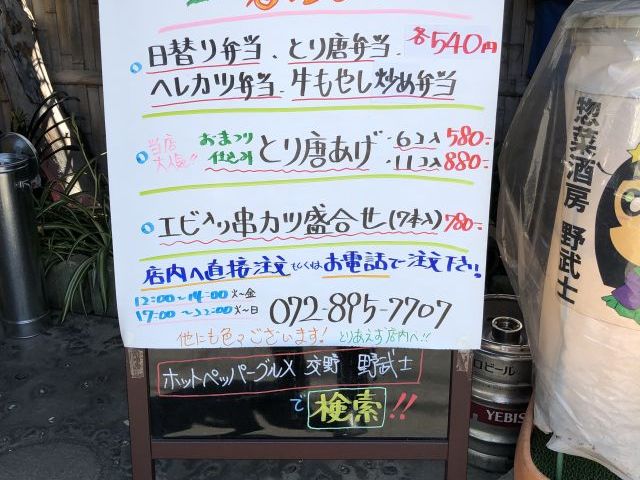 日替り弁当、とり唐弁当、各540円
ヘレカツ弁当、牛もやし炒め弁当
当店大人気!! おまつり仕込み とり唐あげ ・6コ入 580-
・11コ入 880-
エビ入り串カツ盛合せ(7本入) 780-
店内へ直接注文もしくはお電話で注文下さい!
12:00~14:00 火~金
17:00~22:00 火~日
072-895-7707
他にも色々ございます! とりあえず店内へ!!
ホットペッパーグルメ 交野 野武士
で検索!!
惣菜酒房 野武士
ビール
YEBIS